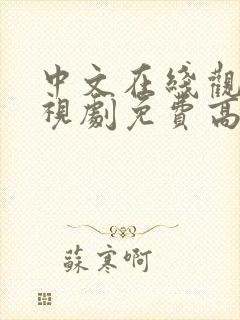 中文在綫觀
視劇免費高
蘇寒啊